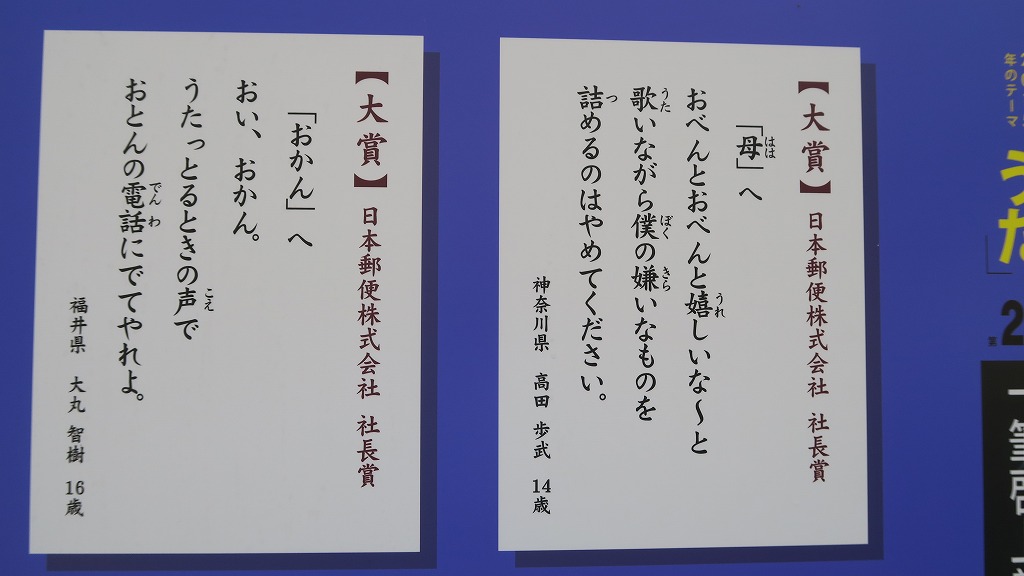 年のテーマ
うた」
第2
一筆啓
【大賞】 日本郵便株式会社 社長賞
「母」へ
おべんとおべんと嬉しいな〜と
歌いながら僕の嫌いなものを
詰めるのはやめてください。
神奈川県 高田 歩武 14歳
【大賞】 日本郵便株式会社 社長賞
「おかん」へ
おい、おかん。
うたっとるときの声で
おとんの電話にでてやれよ。
福井県 大丸 智樹 16歳